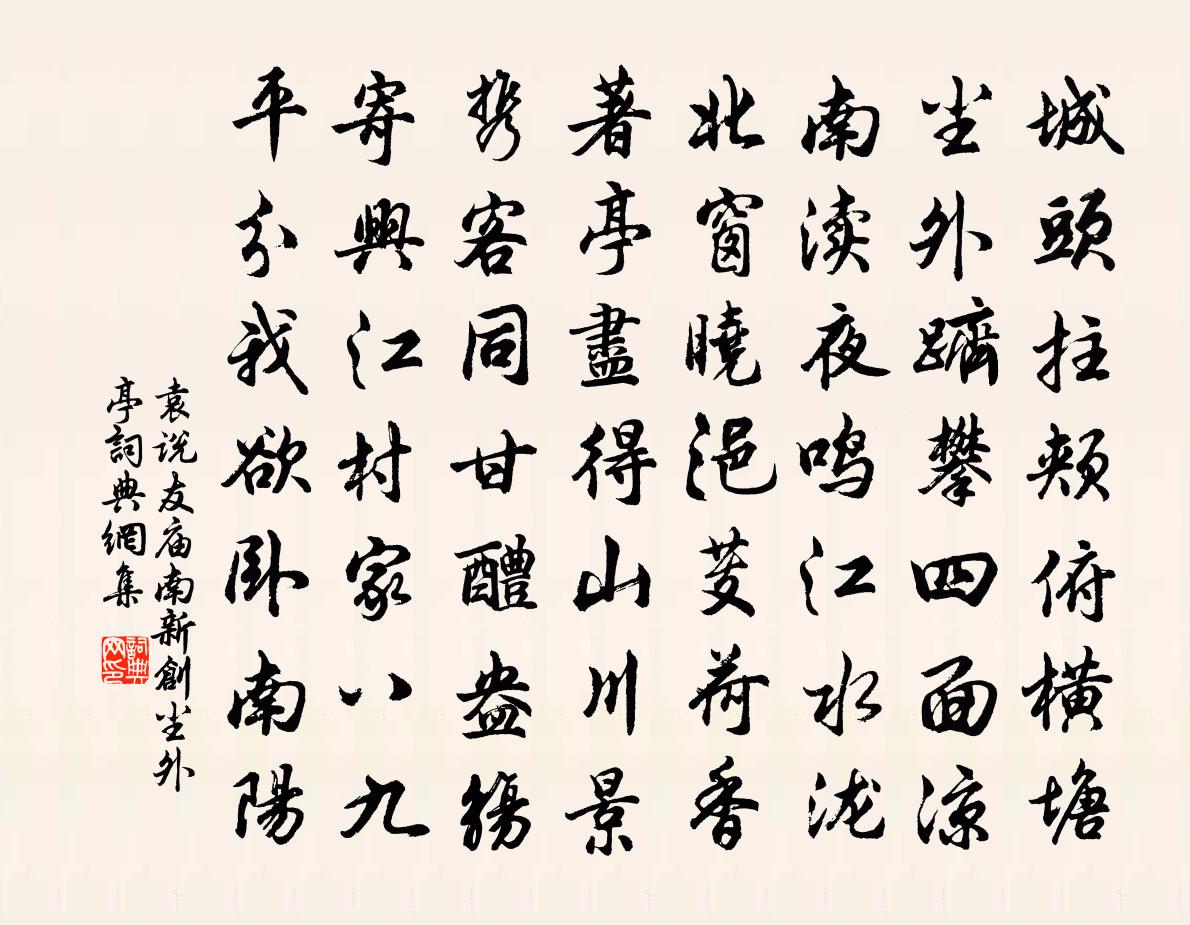 城頭拄頰俯橫塘
尘外躋攀四面凉
南渎夜鸣江水泷
北窗曉浥芰荷香
著亭盡得山川景
携客同甘醴盎觞
寄興江村家八九
平分我欲卧南陽
袁说友庙南新創尘外
亭詞典網集
詞典網印